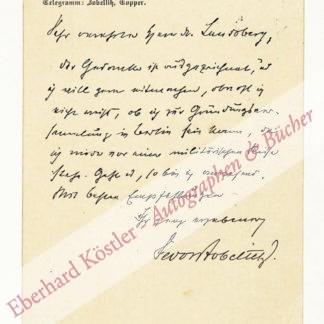 Telegramm: Zobeltitz, Topper.
Sehr verehrter Herr Dr. Landsberg,
der Gedanke ist ausgezeichnet, u
ich will gern mitmachen, obwohl ich
nicht weiß, ob ich zur Gründungsver-
sammlung in Berlin sein kann, da
ich wieder vor einer militärischen Reise
stehe. Geht es, so bin ich
Mit besten Empfehlungen
Ihr ganz ergebener
Fedor Zobeltitz.
Eberhard Köstler - Autographen & Bücher